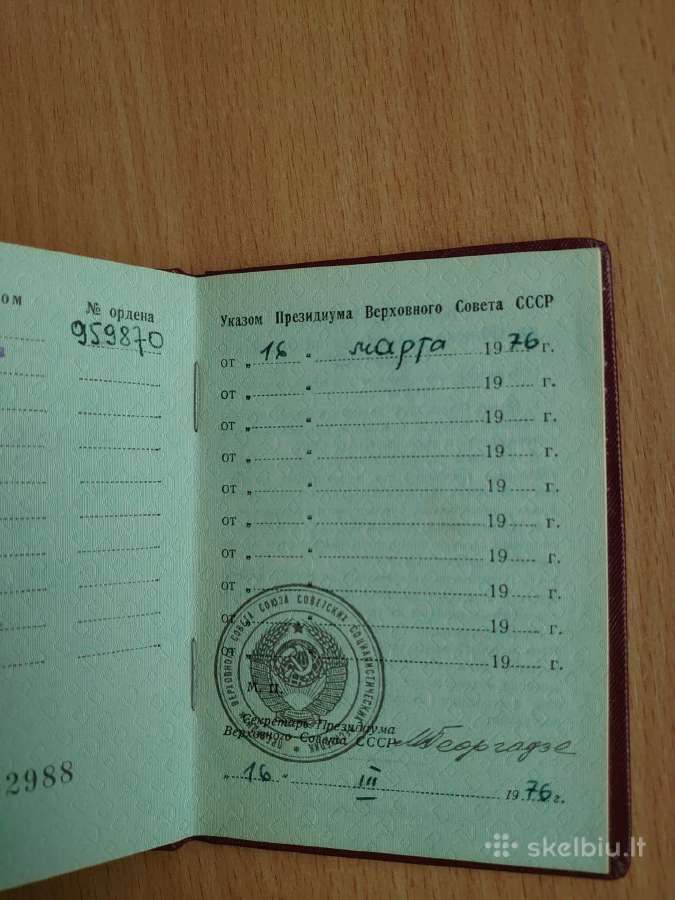 ом
№ ордена
959870
2988
Указом Президиума Верховного Совета СССР
от „ 16 “ марта 1976 г.
от „ “ 19 г.
от „ “ 19 г.
от „ “ 19 г.
от „ “ 19 г.
от „ “ 19 г.
от „ “ 19 г.
от „ “ 19 г.
от „ “ 19 г.
от „ “ 19 г.
ВЕРХОВНОГО СОВЕТА СОЮЗА СОВЕТСКИХ СОЦИАЛИСТИЧЕСКИХ
М. П.
Секретарь Президиума
Верховного Совета СССР
МГеоргадзе
„ 16 “ III 1976 г.
skelbiu.lt